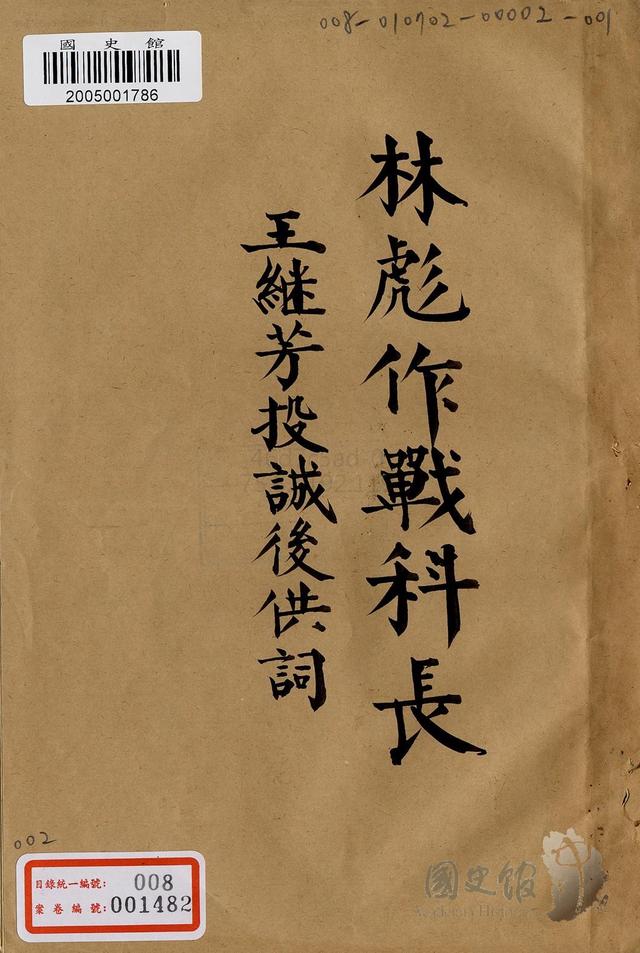 008-010702-00002-001
國史館
2005001786
林彪作戰科長
王継芳投誠後供詞
002
目錄統一編號: 008
案卷編號: 001482
國史館